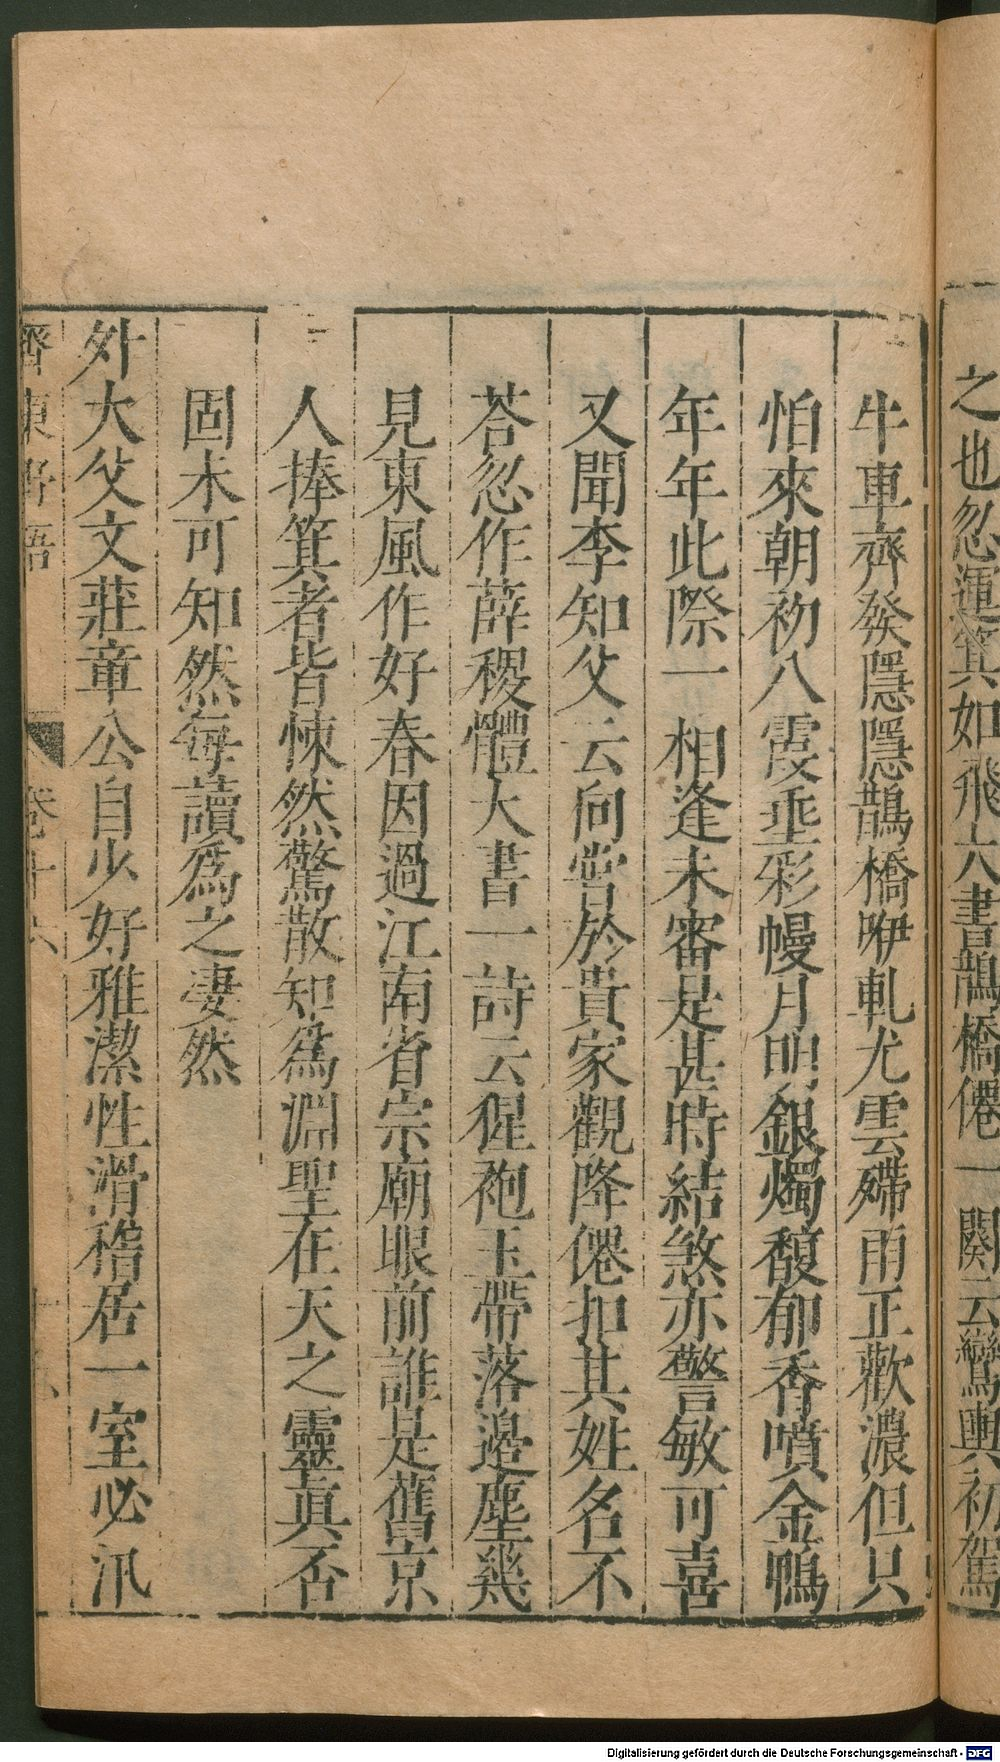 之也忽運箕如飛大書鵲橋僊一闋云鸞輿初駕
牛車齊發隱隱鵲橋咿軋尤雲殢雨正歡濃但只
怕來朝初八霞垂彩幔月明銀燭馥郁香噴金鴨
年年此際一相逢未審是甚時結煞亦警敏可喜
又聞李知父云向嘗於貴家觀降僊扣其姓名不
荅忽作薛稷體大書一詩云猩袍玉帶落邉塵幾
見東風作好春因過江南省宗廟眼前誰是舊京
人捧箕者皆悚然驚散知爲淵聖在天之靈眞否
固未可知然每讀爲之凄然
外大父文莊章公自少好雅潔性滑稽居一室必汛
齊東野語 卷十六
Digitalisierung gefördert durch die Deutsche Forschungsgemeinschaft - DFG